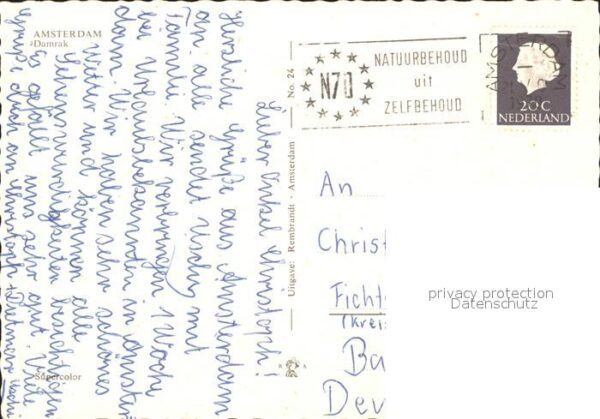 AMSTERDAM
Damrak
No. 24
Uitgave: Rembrandt - Amsterdam
Supercolor
N70
NATUURBEHOUD
uit
ZELFBEHOUD
AMSTERDAM
20 C
NEDERLAND
Lieber Onkel Christoph!
Herzliche Grüße aus Amsterdam
an alle sendet Uschi mit
Familie. Wir verbringen 1 Woche
bei Urlaubsbekannten in
dam. Wir haben sehr schönes
Wetter und können alle
Sehenswürdigkeiten besichtigen.
Es gefällt uns sehr gut. Viele
Grüße auch an
An
Christ
Ficht
(Kreis
Ba
Deu
privacy protection
Datenschutz